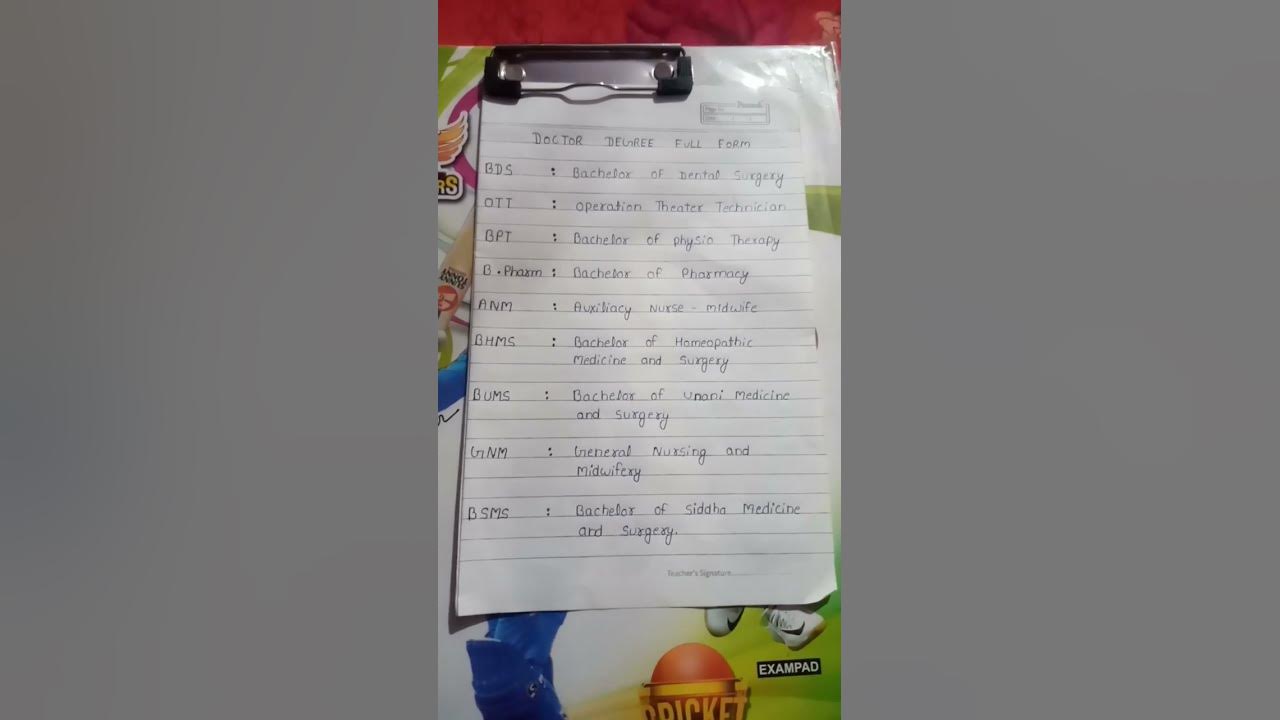 DOCTOR DEGREE FULL FORM
BDS : Bachelor of Dental Surgery
OTT : Operation Theater Technician
BPT : Bachelor of physio Therapy
B.Pharm : Bachelor of Pharmacy
ANM : Auxiliacy Nurse - midwife
BHMS : Bachelor of Homeopathic
Medicine and Surgery
BUMS : Bachelor of Unani Medicine
and Surgery
GNM : General Nursing and
Midwifery
BSMS : Bachelor of Siddha Medicine
and Surgery.
Teacher's Signature
EXAMPAD
CRICKET